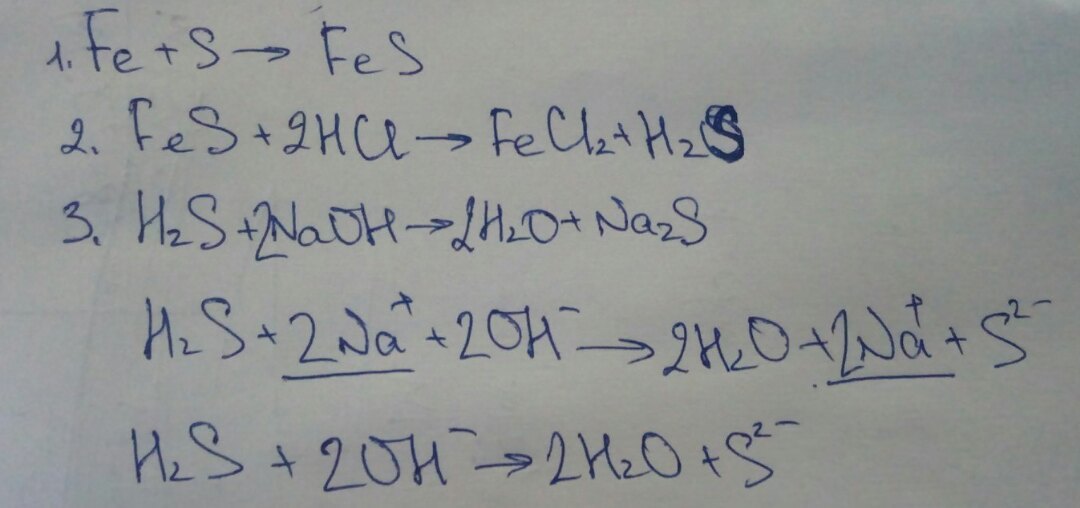 1. Fe + S → FeS
2. FeS + 2HCl → FeCl₂ + H₂S
3. H₂S + 2NaOH → 2H₂O + Na₂S
H₂S + 2Na⁺ + 2OH⁻ → 2H₂O + 2Na⁺ + S²⁻
H₂S + 2OH⁻ → 2H₂O + S²⁻